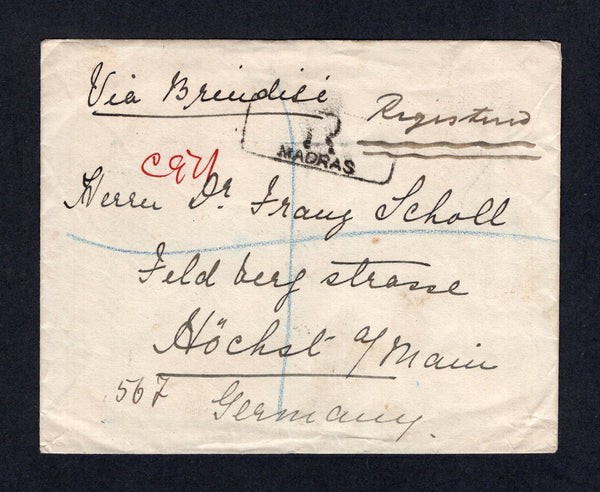 Via Brindisi
Registered
R
MADRAS
Herrn Dr. Franz Scholl
Feldberg strasse
Höchst a/Main
567
Germany.